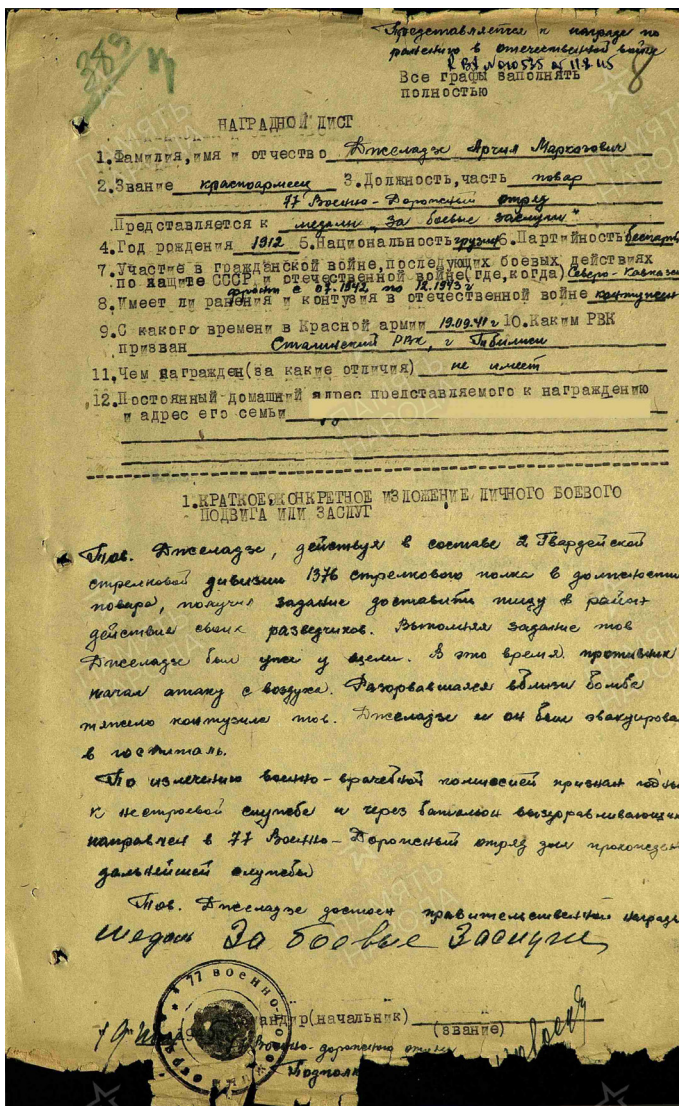 383
Представляется к награде по
ранению в отечественной войне
8
Все графы заполнять
полностью
НАГРАДНОЙ ЛИСТ
1.Фамилия,имя и отчество Джеладзе Арчил Маркозович
2.Звание красноармеец 3.Должность,часть повар
77 Военно-Дорожный отряд
Представляется к медали „За боевые заслуги"
4.Год рождения 1912 5.Национальность грузин 6.Партийность беспарт
7.Участие в гражданской войне,последующих боевых действиях
по защите СССР и отечественной войне(где,когда) Северо-Кавказс
фронт с 07.1942 по 12.1943 г
8.Имеет ли ранения и контузия в отечественной войне контужен
9.С какого времени в Красной армии 19.09.41 г 10.Каким РВК
призван Сталинский РВК, г Тбилиси
11.Чем награжден(за какие отличия) не имеет
12.Постоянный домашний адрес представляемого к награждению
и адрес его семьи
1.КРАТКОЕ КОНКРЕТНОЕ ИЗЛОЖЕНИЕ ЛИЧНОГО БОЕВОГО
ПОДВИГА ИЛИ ЗАСЛУГ
Тов. Джеладзе, действуя в составе 2 Гвардейской
стрелковой дивизии 1376 стрелкового полка в должности
повара, получил задание доставить пищу в район
действия своих разведчиков. Выполняя задание тов
Джеладзе был уже у цели. В это время противник
начал атаку с воздуха. Разорвавшаяся вблизи бомба
тяжело контузила тов. Джеладзе и он был эвакуирова
в госпиталь.
По излечению военно-врачебной комиссией признан годным
к нестроевой службе и через батальон выздоравливающих
направлен в 77 Военно-Дорожный отряд для прохожден
дальнейшей службы
Тов. Джеладзе достоен правительственной награды
медаль За боевые Заслуги
77 ВОЕННО-
Командир(начальник)
(звание)
19
Военно-дорожного отряда
Подполк
ПАМЯТЬ
НАРОДА